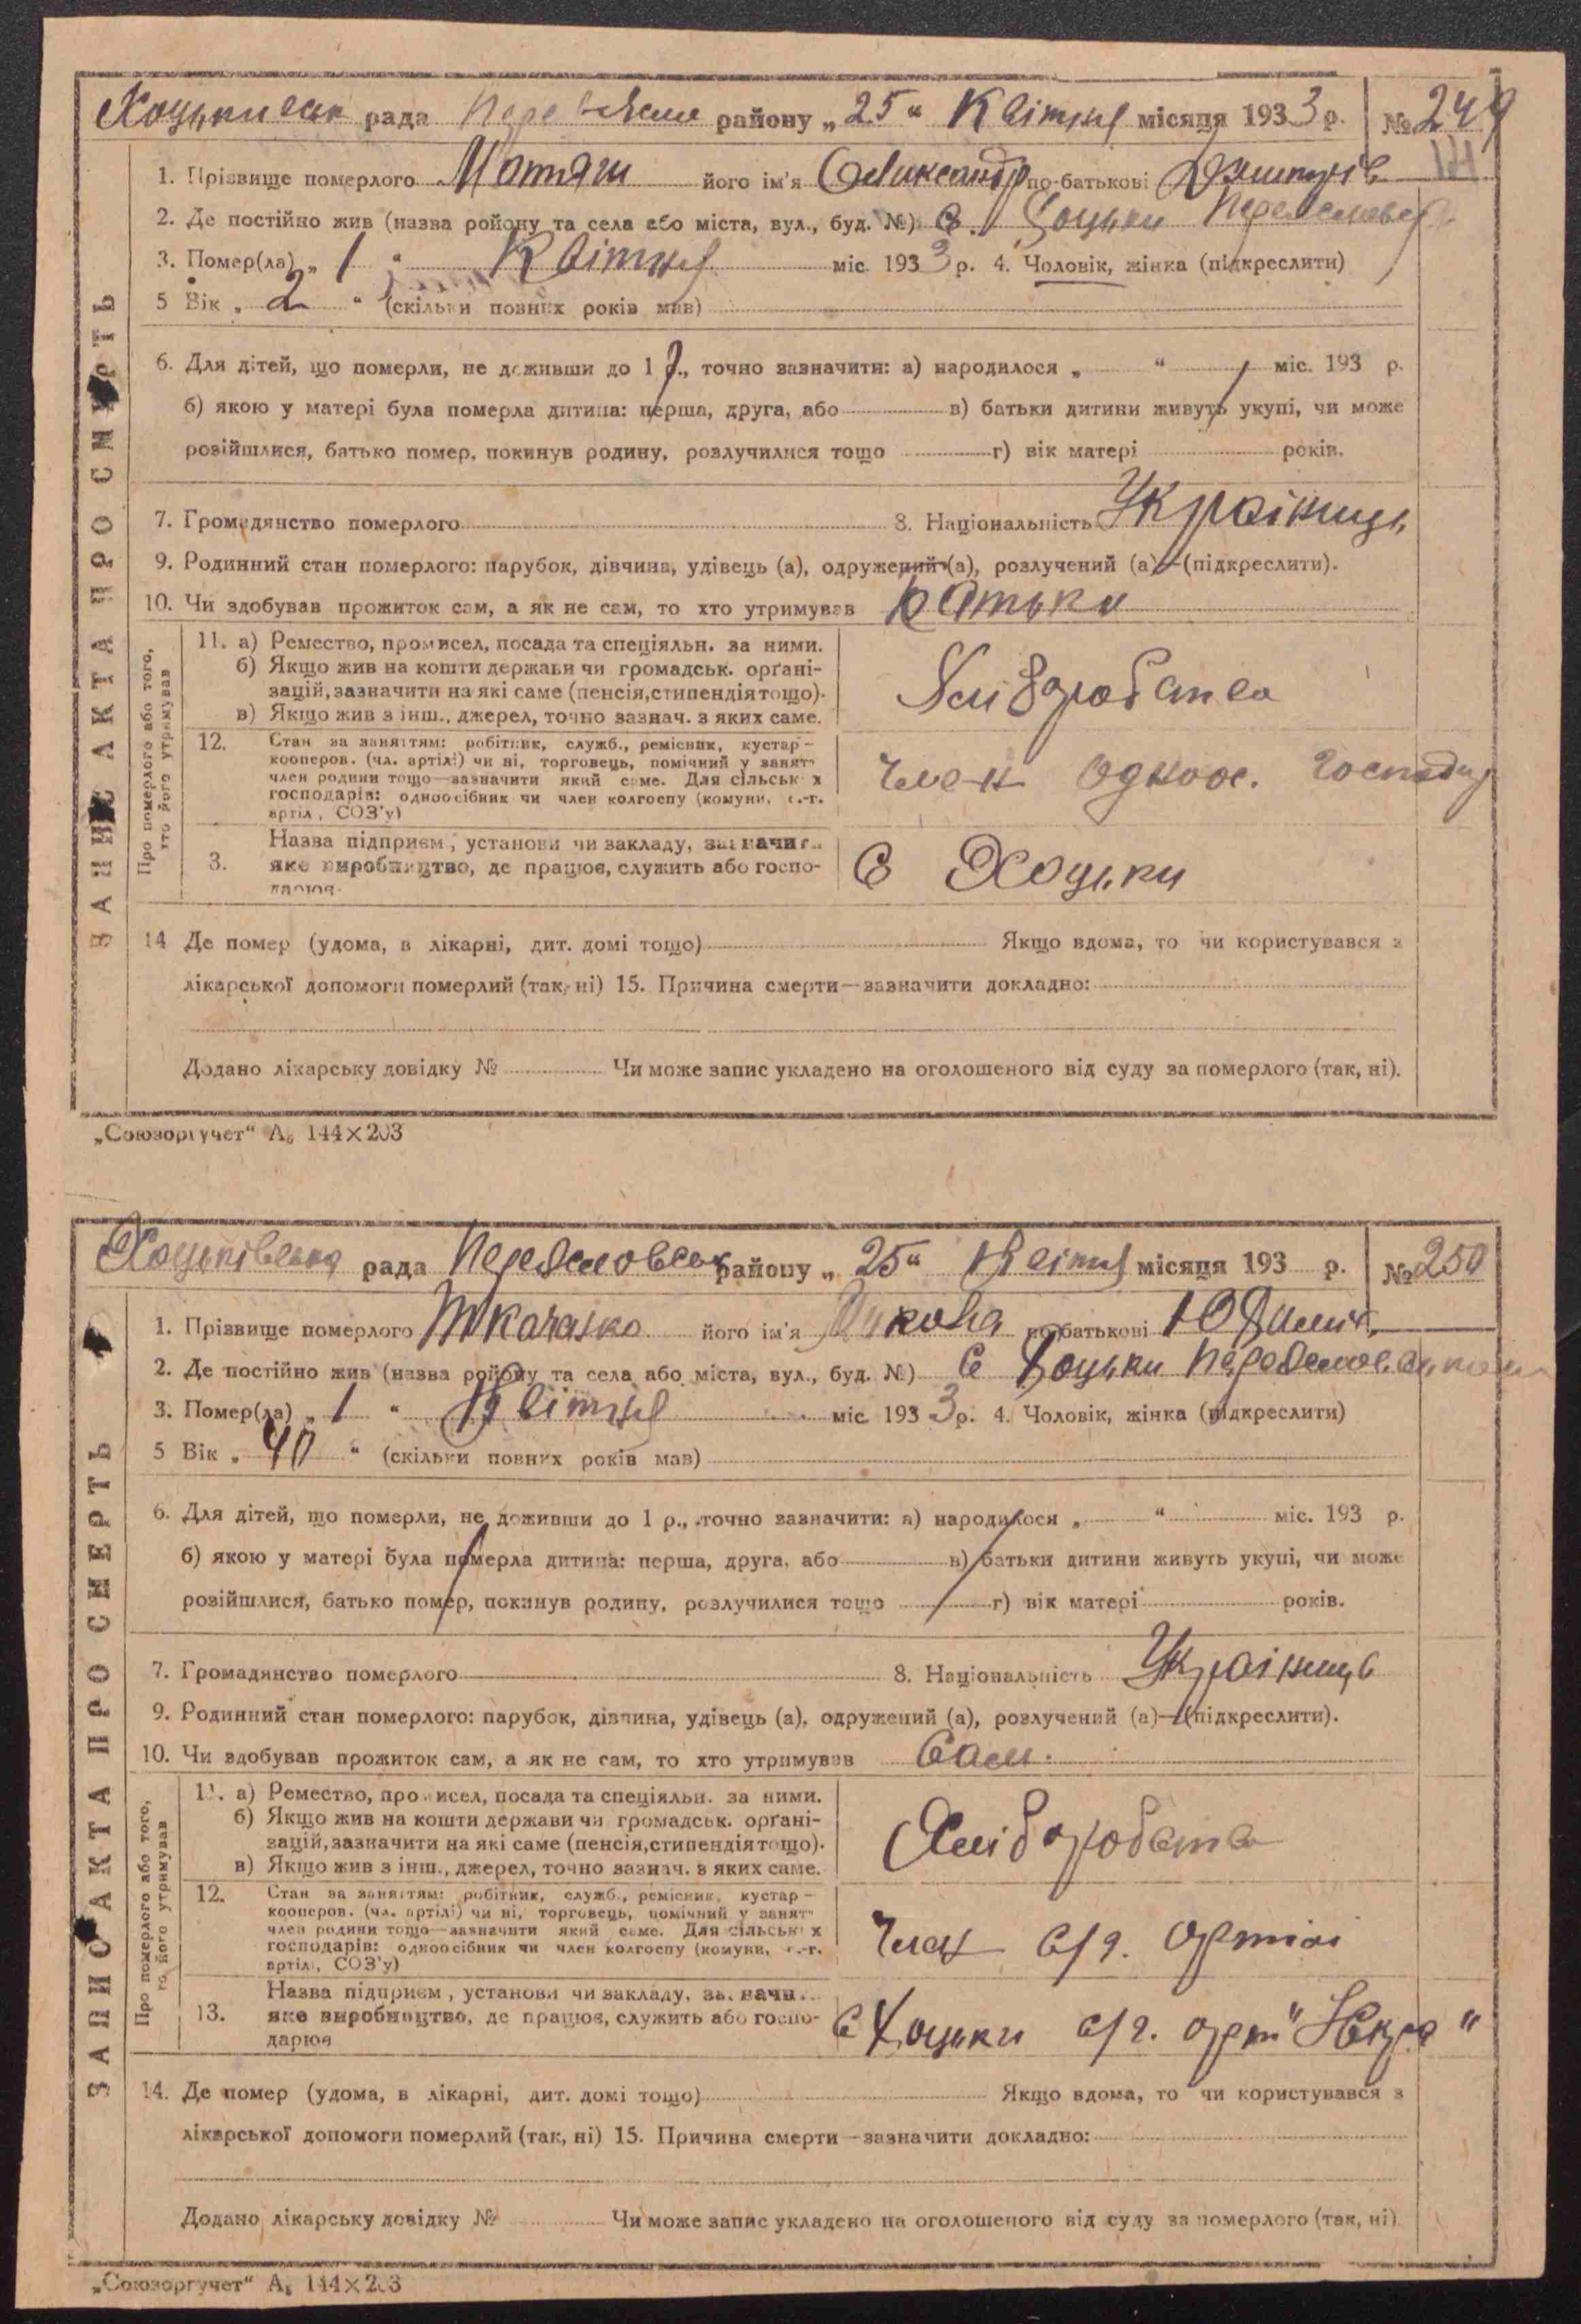 Хоцьківськ рада Переяслов району „25“ Квітня місяця 1933 р. № 249
1. Прізвище померлого Мотяш його ім'я Олександр по-батькові
2. Де постійно жив (назва ройону та села або міста, вул., буд. №) с. Хоцьки
3. Помер(ла) „1“ Квітня міс. 1933 р. 4. Чоловік, жінка (підкреслити)
5 Вік „2“ (скільки повних років мав)
6. Для дітей, що померли, не доживши до 1 р., точно зазначити: а) народилося „ “ міс. 193 р.
б) якою у матері була померла дитина: перша, друга, або в) батьки дитини живуть укупі, чи може
розійшлися, батько помер, покинув родину, розлучилися тощо г) вік матері років.
7. Громадянство померлого 8. Національність Українець
9. Родинний стан померлого: парубок, дівчина, удівець (а), одружений (а), розлучений (а)—(підкреслити).
10. Чи здобував прожиток сам, а як не сам, то хто утримував батьки
ЗАПИС АКТА ПРО СМЕРТЬ
Про померлого або того, хто його утримував
11. а) Ремество, промисел, посада та спеціяльн. за ними.
б) Якщо жив на кошти держави чи громадськ. орґані-
зацій, зазначити на які саме (пенсія, стипендія тощо).
в) Якщо жив з інш., джерел, точно зазнач. з яких саме.
Хліборобство
12. Стан за заняттям: робітник, служб., ремісник, кустар—
кооперов. (чл. артілі) чи ні, торговець, помічний у занят.
член родини тощо—зазначити який саме. Для сільськ х
господарів: одноосібник чи член колгоспу (комуни, с.-г.
артіл, СОЗ'у)
член одноос. господар
3. Назва підприєм, установи чи закладу, зазначит.
яке виробництво, де працює, служить або госпо-
дарює.
С Хоцьки
14 Де помер (удома, в лікарні, дит. домі тощо) Якщо вдома, то чи користувався з
лікарської допомоги померлий (так, ні) 15. Причина смерти—зазначити докладно:
Додано лікарську довідку № Чи може запис укладено на оголошеного від суду за померлого (так, ні).
„Союзоргучет“ А₅ 144×203
Хоцьківська рада Переясловськ району „25“ Квітня місяця 193 р. № 250
1. Прізвище померлого Ткаченко його ім'я Микола по-батькові Юхимів
2. Де постійно жив (назва ройону та села або міста, вул., буд. №) с Хоцьки
3. Помер(ла) „1“ Квітня міс. 1933 р. 4. Чоловік, жінка (підкреслити)
5 Вік „40“ (скільки повних років мав)
6. Для дітей, що померли, не доживши до 1 р., точно зазначити: а) народилося „ “ міс. 193 р.
б) якою у матері була померла дитина: перша, друга, або в) батьки дитини живуть укупі, чи може
розійшлися, батько помер, покинув родину, розлучилися тощо г) вік матері років.
7. Громадянство померлого 8. Національність Українець
9. Родинний стан померлого: парубок, дівчина, удівець (а), одружений (а), розлучений (а)—(підкреслити).
10. Чи здобував прожиток сам, а як не сам, то хто утримував Сам.
ЗАПИС АКТА ПРО СМЕРТЬ
Про померлого або того, хто його утримував
11. а) Ремество, промисел, посада та спеціяльн. за ними.
б) Якщо жив на кошти держави чи громадськ. орґані-
зацій, зазначити на які саме (пенсія, стипендія тощо).
в) Якщо жив з інш., джерел, точно зазнач. з яких саме.
Хліборобство
12. Стан за заняттям: робітник, служб., ремісник, кустар—
кооперов. (чл. артілі) чи ні, торговець, помічний у занят.
член родини тощо—зазначити який саме. Для сільськ х
господарів: одноосібник чи член колгоспу (комуни, с.-г.
артіл, СОЗ'у)
Член с/г. Артілі
13. Назва підприєм, установи чи закладу, зазначи..
яке виробництво, де працює, служить або госпо-
дарює
С Хоцьки с/г. арт "Іскра"
14. Де помер (удома, в лікарні, дит. домі тощо) Якщо вдома, то чи користувався з
лікарської допомоги померлий (так, ні) 15. Причина смерти—зазначити докладно:
Додано лікарську довідку № Чи може запис укладено на оголошеного від суду за померлого (так, ні)
„Союзоргучет“ А₅ 144×203